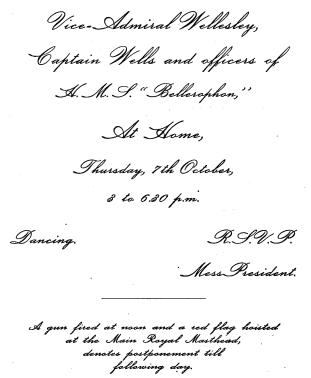 Vice-Admiral Wellesley,
Captain Wells and officers of
H.M.S. "Bellerophon,"
At Home,
Thursday, 7th October,
3 to 6.30 p.m.
Dancing. R.S.V.P.
Mess President.
A gun fired at noon and a red flag hoisted
at the Main Royal Masthead,
denotes postponement till
following day.